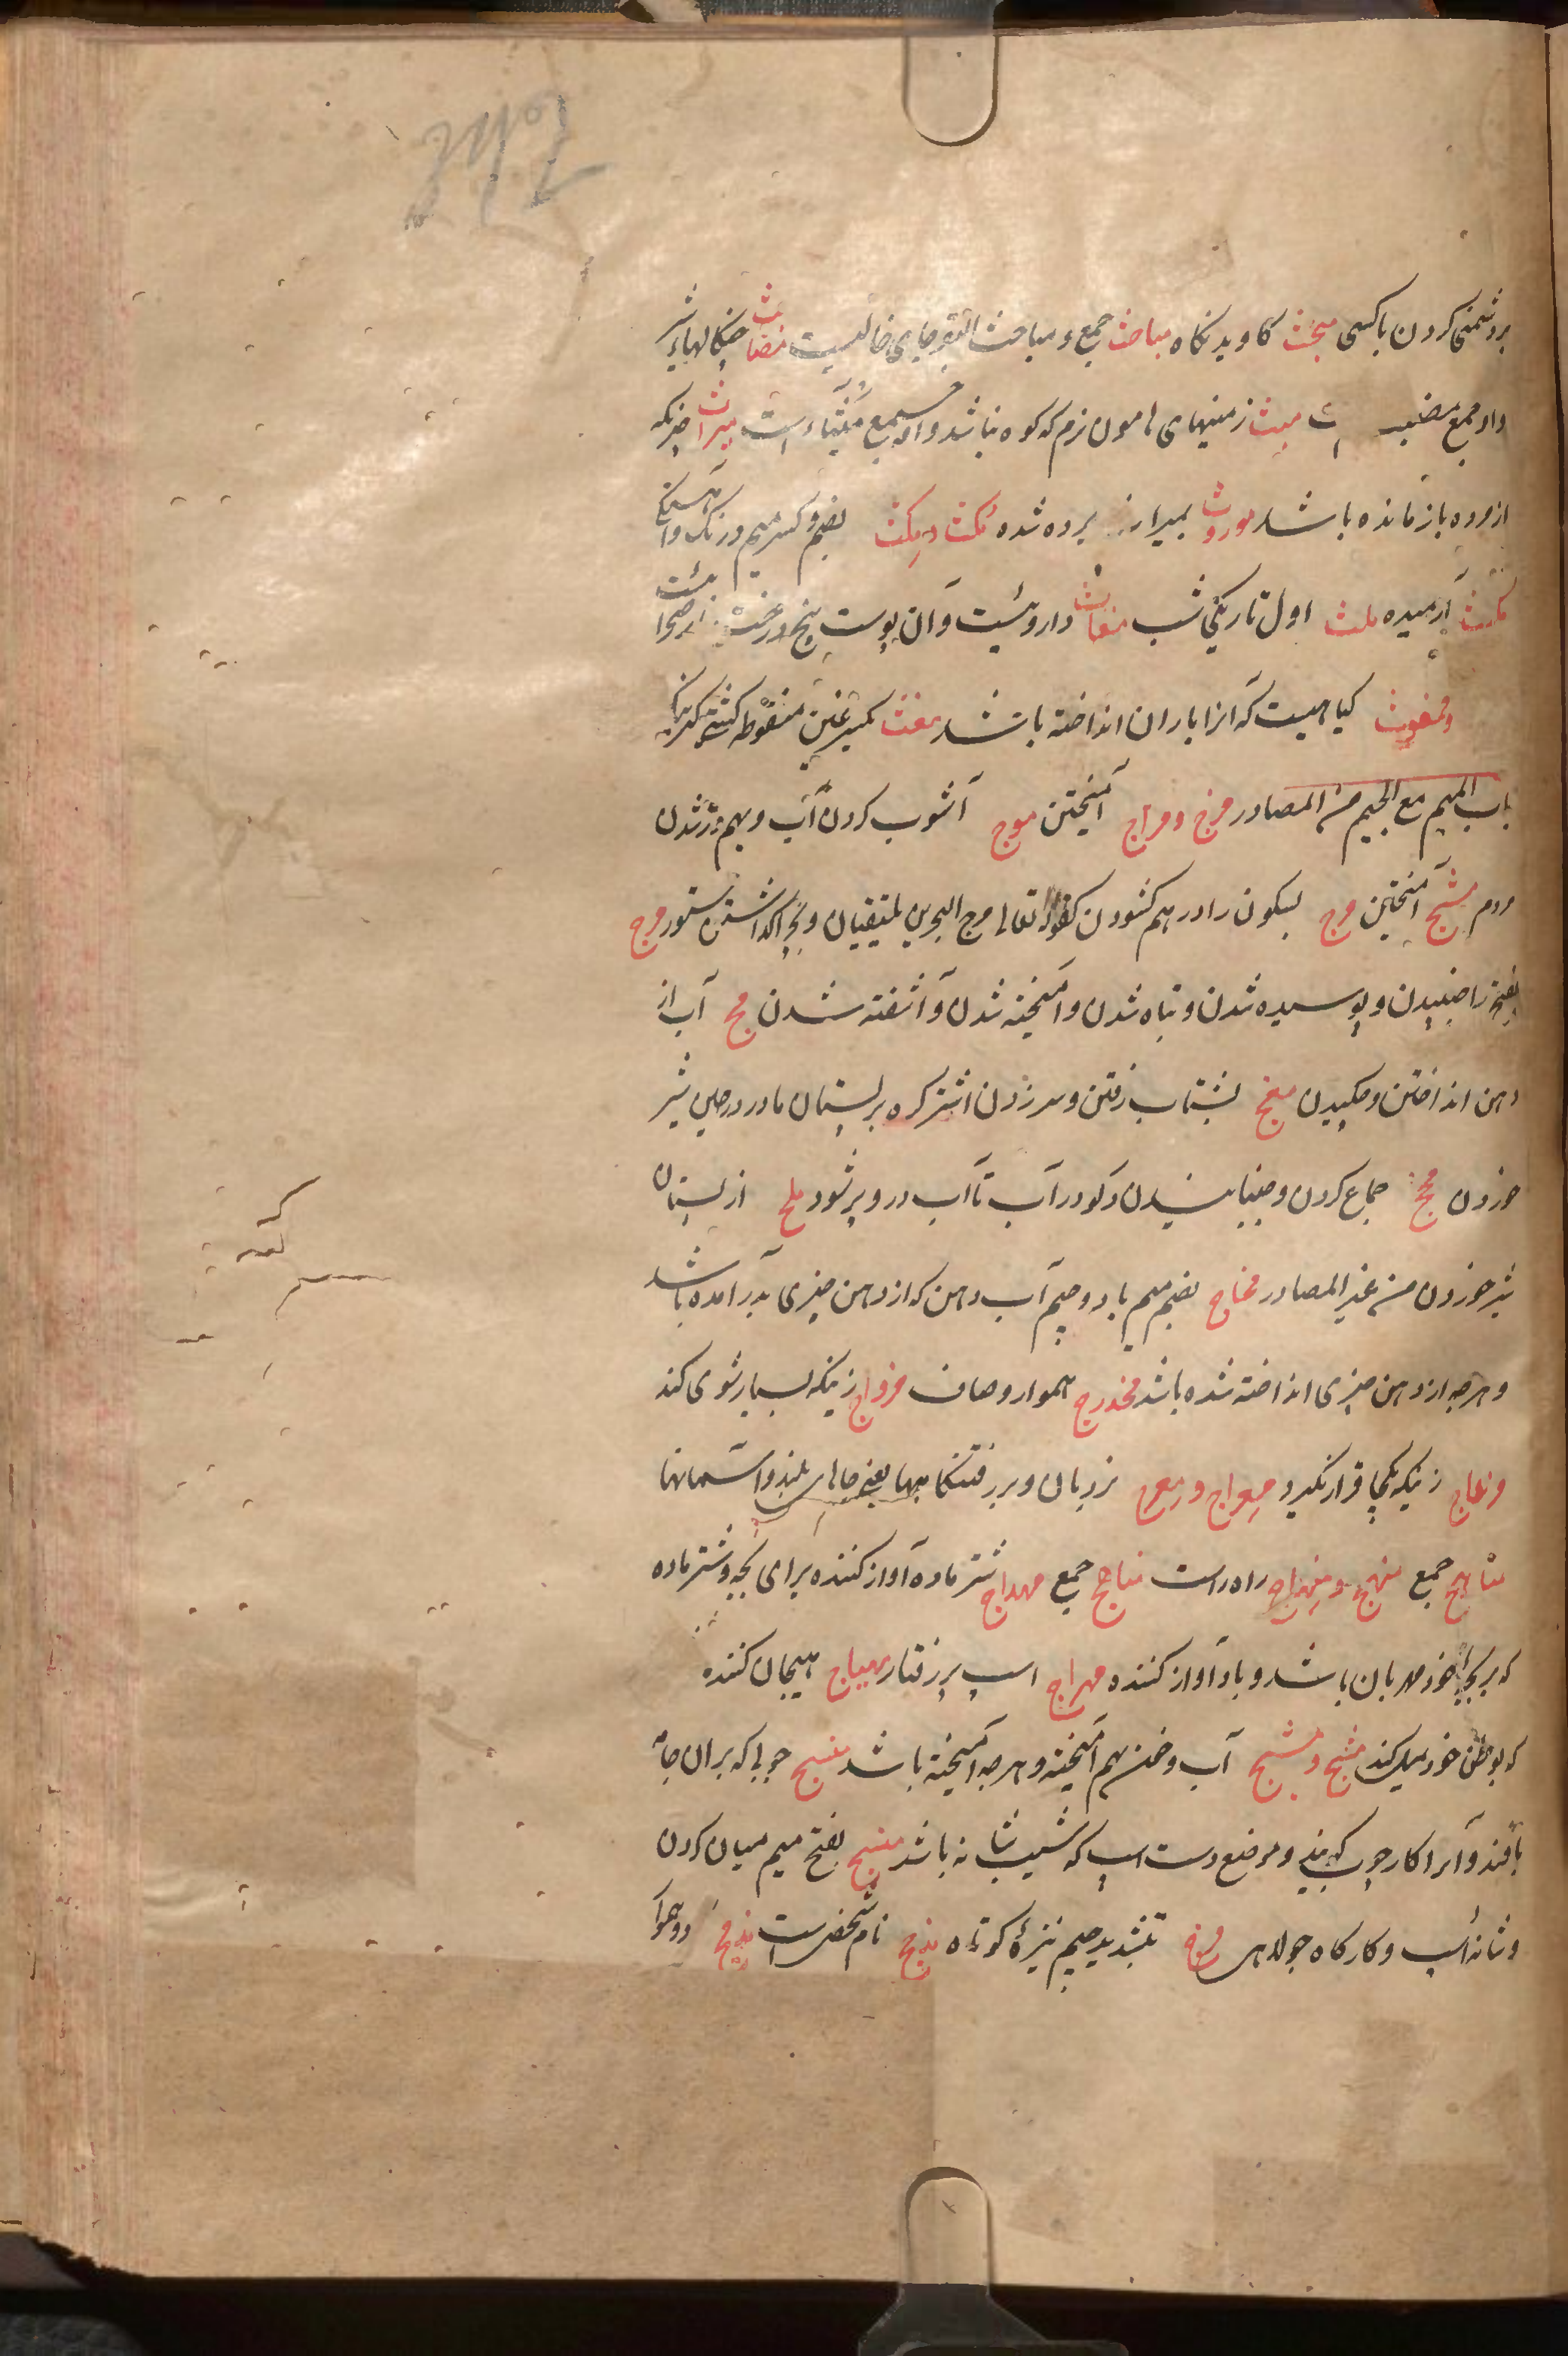 بردشمنی کردن باکسی مبحث کاویدنگاه مباحث جمع و مباحث البقر جای خالیست مضابث چنکالهاء شیر
واو جمع مضبث است میث زمینهای هامون نرم که کوه نباشد واو جمع میثاء است میراث چیزیکه
از مرده بازمانده باشد موروث بمیراث برده شده مکث و مکث بضم و کسر میم درنک و آهستکی
مکث آرمیده ملث اول تاریکی شب مغاث داروئیست و آن پوست بیخ درخت
و ممغوث کیاهیست که انرا باران انداخته باشد مغث بکسر غین منقوطه کشتی کیرنده
باب المیم مع الجیم من المصادر مزج و مزاج آمیختن موج آشوب کردن آب و بهم در شدن
مردم مشج آمیختن مرج بسکون را در هم کشودن کقوله تعالی مرج البحرین یلتقیان و بچرا کذاشتن ستور مرج
بفتح را جنبیدن و پوسیده شدن و تباه شدن و آمیخته شدن و آشفته شدن مج آب از
دهن انداختن و چکیدن معج بشتاب رفتن و سر زدن اشتر کره بر پستان مادر در حین شیر
خوردن مخج جماع کردن و جنبانیدن دلو در آب تا آب در و پر شود ملج از پستان
شیر خوردن من غیر المصادر مجاج بضم میم باد و جیم آب دهن که از دهن چیزی بدر آمده باشد
و هرچه از دهن چیزی انداخته شده باشد مخدرج هموار و صاف مزواج زنیکه بسیار شوی کند
مزعاج زنیکه یکجا قرار نکیرد معراج و معرج نردبان و بر رفتنکاهها یعنی جاهای بلند و آسمانها
مناهج جمع منهج و منهاج راه راست مناهج جمع مهداج شتر ماده آواز کننده برای بچه و شتر ماده
که بر بچه خود مهربان باشد و باد آواز کننده مهراج اسپ پر رفتار مهیاج هیجان کننده
که بوطن خود میل کند مشج و مشیج آب و خون بهم آمیخته و هرچه آمیخته باشد منسج چوبی که بران جامه
بافند و آنرا کارچوب کویند و موضع دست اسپ که شیب شانه باشد منسج بفتح میم میان کردن
و شانه اسپ و کارکاه جولاهی مزج بتشدید جیم نیزه کوتاه مذحج نام شخص است